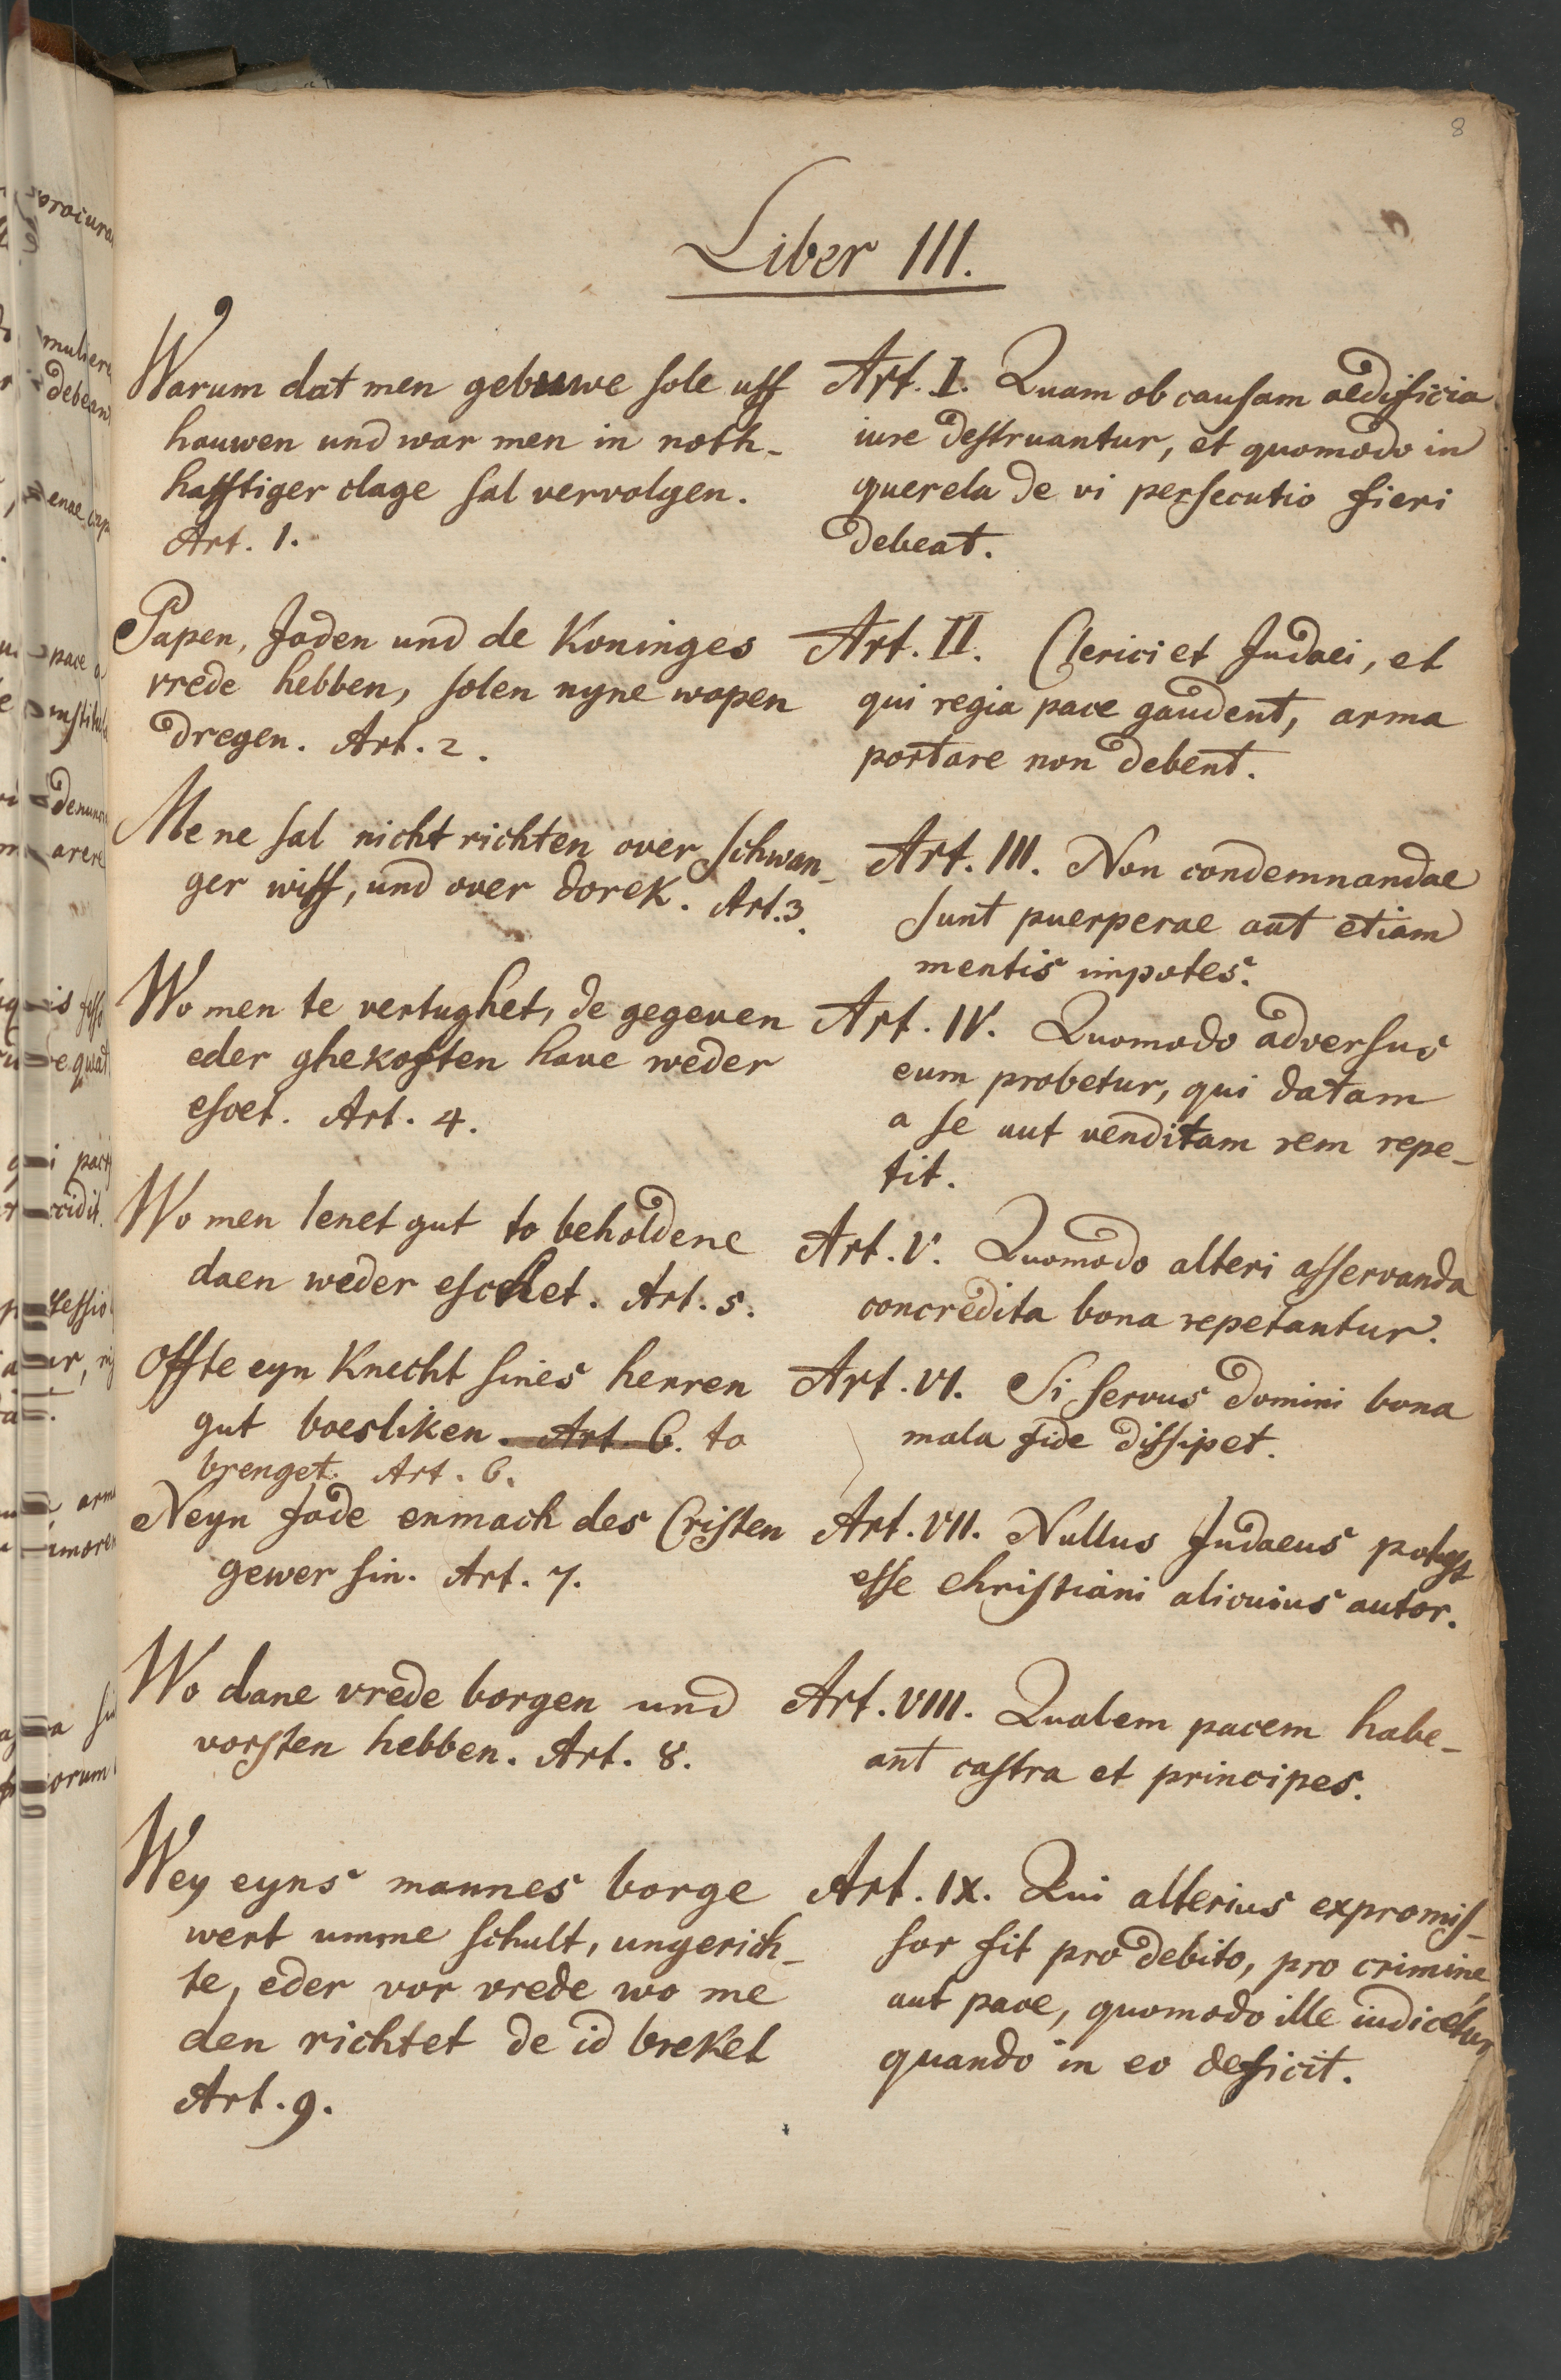 8
Liber III.
Warum dat men gebuwe sole uff
hauwen und war men in noth-
hafftiger clage sal vervolgen.
Art. 1.
Papen, Joden und de Koninges
vrede hebben, solen nyne wapen
dregen. Art. 2.
Me ne sal nicht richten over schwan-
ger wiff, und over dorek. Art. 3.
Wo men te vertughet, de gegeven
eder ghekoften have weder
escet. Art. 4.
Wo men lenet gut to beholdene
daen weder eschet. Art. 5.
Offte eyn Knecht sines herren
gut boesliken. Art. 6. to
brenget. Art. 6.
Neyn Jode enmach des Cristen
gewer sin. Art. 7.
Wo dane vrede borgen und
vorsten hebben. Art. 8.
Wey eyns mannes borge
wert umme schult, ungerich-
te, eder vor vrede wo me
den richtet de id breket
Art. 9.
Art. I. Quam ob causam aedificia
iure destruantur, et quomodo in
querela de vi persecutio fieri
debeat.
Art. II. Clerici et Judaei, et
qui regia pace gaudent, arma
portare non debent.
Art. III. Non condemnandae
sunt puerperae aut etiam
mentis impotes.
Art. IV. Quomodo adversus
eum probetur, qui datam
a se aut venditam rem repe-
tit.
Art. V. Quomodo alteri asservanda
concredita bona repetantur.
Art. VI. Si servus domini bona
mala fide dissipet.
Art. VII. Nullus Judaeus potest
esse christiani alicuius autor.
Art. VIII. Qualem pacem habe-
ant castra et principes.
Art. IX. Qui alterius expromis-
sor fit pro debito, pro crimine,
aut pace, quomodo ille iudicetur
quando in eo deficit.